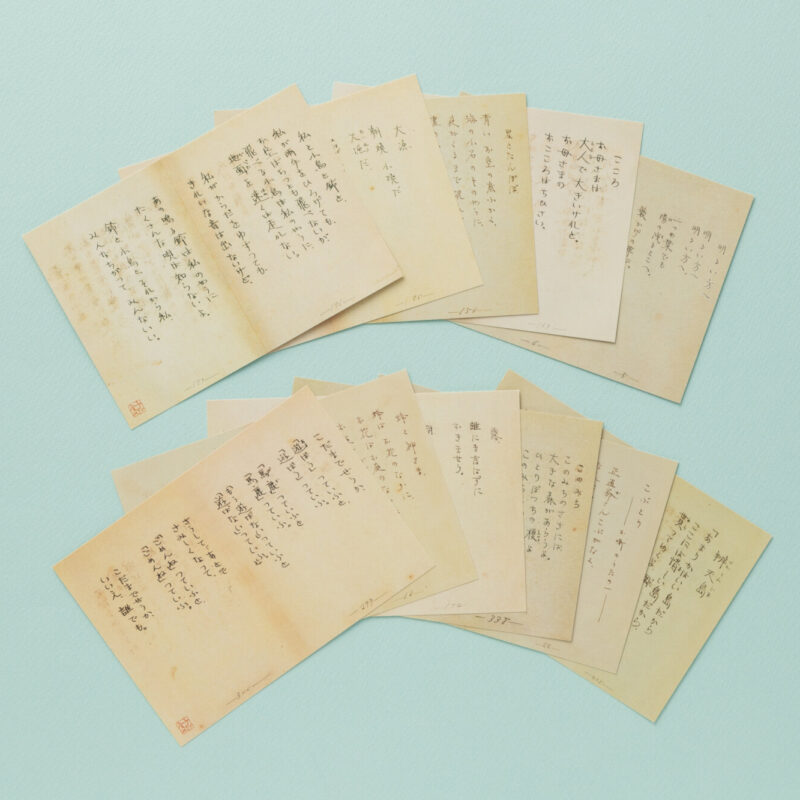 私と小鳥と鈴と。
私が両手をひろげても、
お空はちつとも飛べないが
飛べる小鳥は私のやうに、
地面を速くは走れない。
私がからだをゆすつても、
きれいな音は出ないけど、
あの鳴る鈴は私のやうに
たくさんな唄は知らないよ。
鈴と、小鳥と、それから私、
みんなちがつて、みんないい。
大漁
朝焼小焼だ
大漁だ
星とたんぽぽ
青いお空の底ふかく、
海の小石のそのやうに
夜がくるまで沈
—158—
こころ
お母さまは
大人で大きいけれど。
お母さまの
おこころはちひさい。
明るい方へ
明るい方へ
明るい方へ。
一つの葉でも
陽の洩るとこへ。
藪かげの草は。
こだまでせうか
「遊ぼう」つていふと
「遊ぼう」つていふ。
「馬鹿」つていふと
「馬鹿」つていふ。
「もう遊ばない」つていふと
「遊ばない」つていふ。
さうして、あとで
さみしくなつて、
「ごめんね」つていふと
「ごめんね」つていふ。
こだまでせうか、
いいえ、誰でも。
蜂と神さま
蜂はお花のなかに、
お花はお庭のな
露
誰にも言はずに
おきませう。
朝
このみち
このみちのさきには
大きな森があらうよ。
ひとりぼつちの榎よ
このみち
—338—
こぶとり
正直爺さんこぶがなく、
辨天島
「あまりかはいい島だから
ここには惜しい島だから
貰つてゆくよ